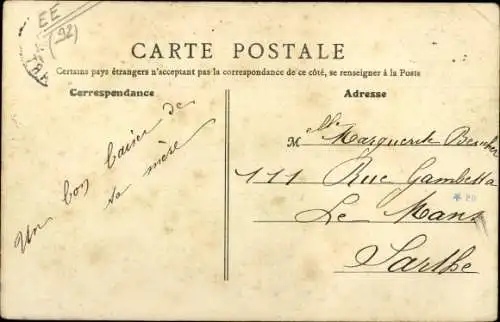 EE
(92)
CARTE POSTALE
Certains pays étrangers n'acceptant pas la correspondance de ce côté, se renseigner à la Poste
Correspondance
Adresse
Un bon baiser de
ta mère
Mlle Marguerite
111 Rue Gambetta
Le Mans
Sarthe